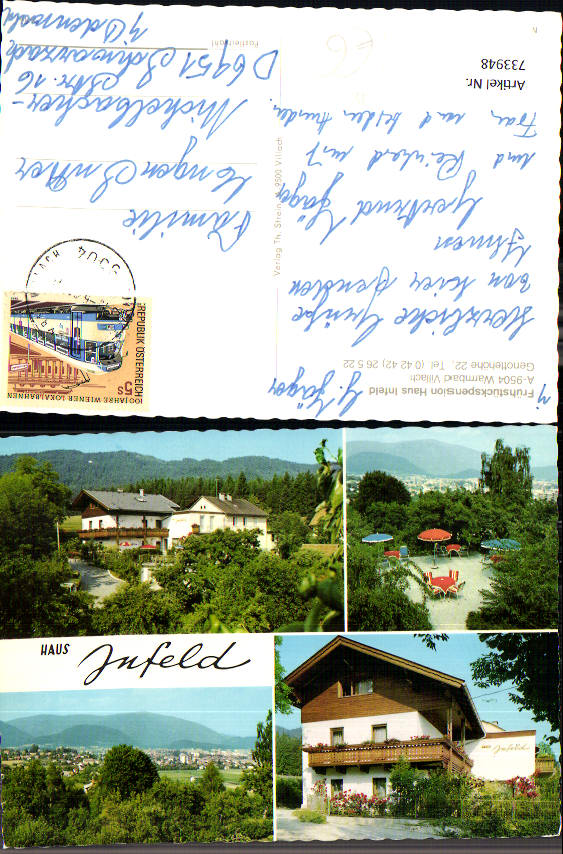 Frühstückspension Haus Infeld
A-9504 Warmbad Villach
Genottehöhe 22, Tel. (0 42 42) 26 5 22
Herzliche Grüße
von hier senden
Ihnen
Gertrud Jäger
und Reinhard mit
Frau und beiden Kindern.
Artikel Nr.
733948
Verlag Th. Strein, A-9500 Villach
REPUBLIK ÖSTERREICH
5s
100 JAHRE WIENER LOKALBAHNEN
Familie
Michelbacher-
Str. 16
D 6951 Schwarzach
Postleitzahl
HAUS
Infeld
HAUS Infeld